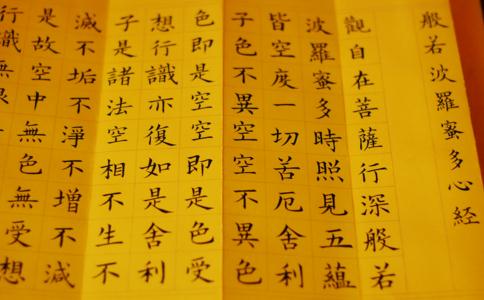 般若波羅蜜多心経
觀自在菩薩行深般若
波羅蜜多時照見五蘊
皆空度一切苦厄舍利
子色不異空空不異色
色即是空空即是色受
想行識亦復如是舍利
子是諸法空相不生不
滅不垢不淨不增不減
是故空中無色無受想
行識無